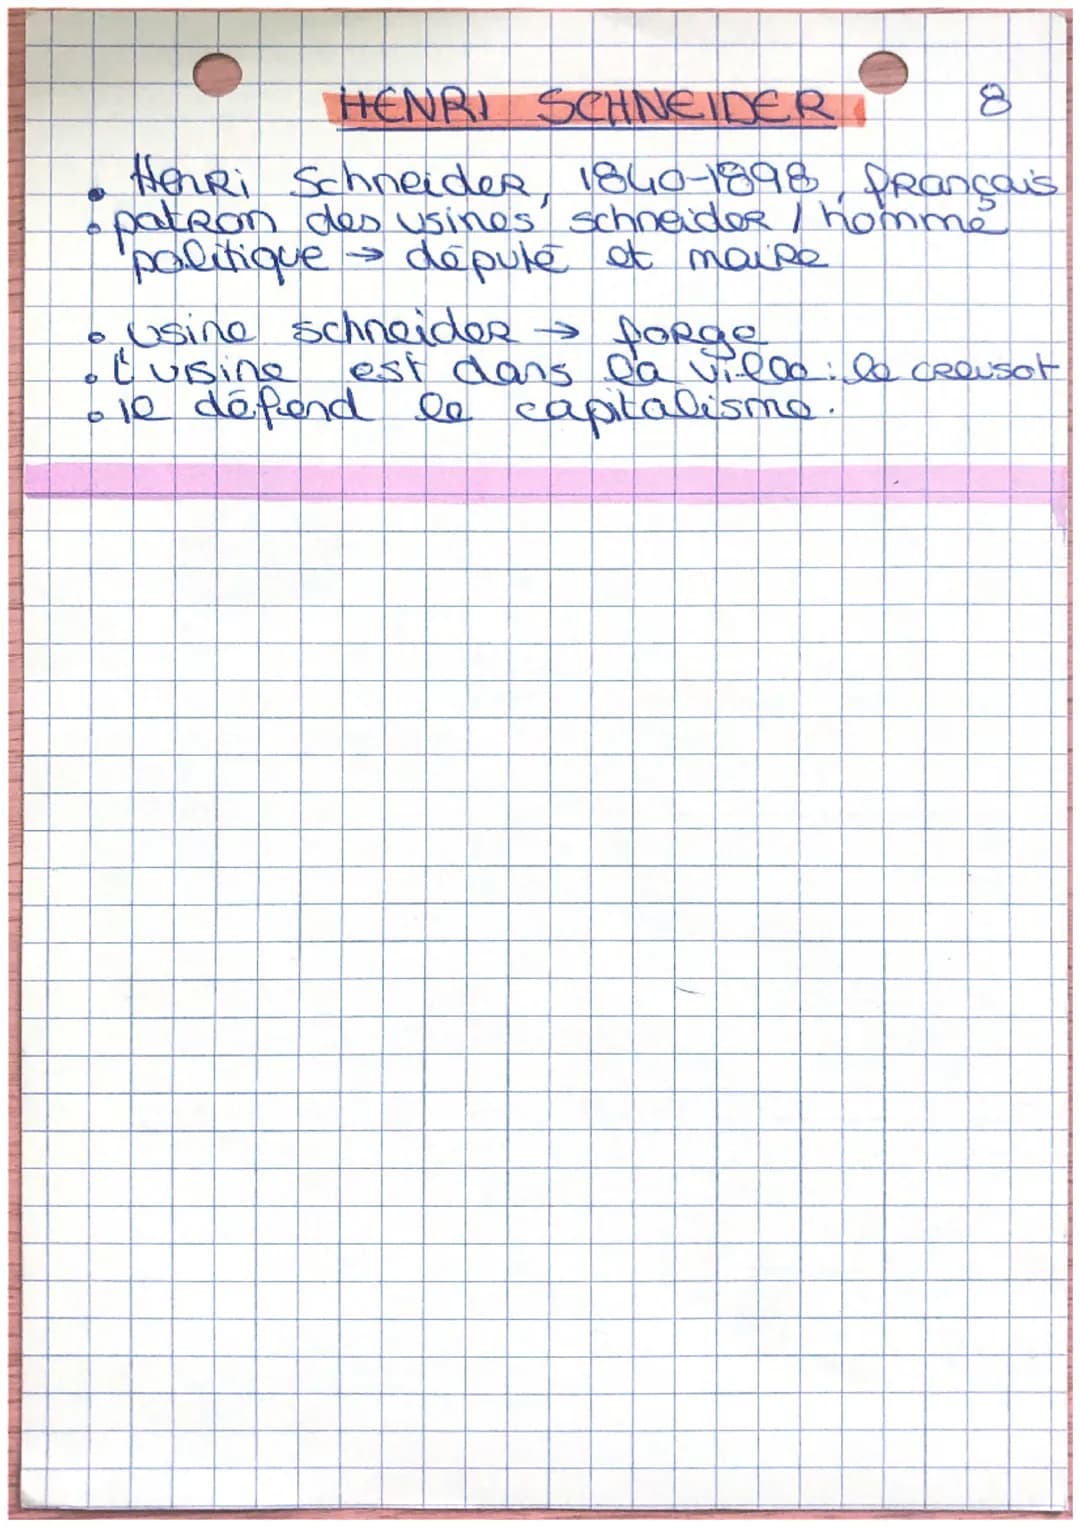 HENRI SCHNEIDER 8
• Henri Schneider, 1840-1898, français
• patron des usines schneider / homme
politique → député et maire
• Usine schneider → forge
• L'usine est dans la ville : le creusot
• il défend le capitalisme.